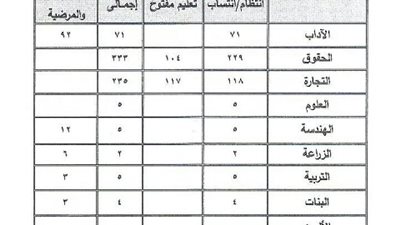 انتظام/انتساب تعليم مفتوح إجمالى والمرضية
الآداب ٧١ ٧١ ٩٢
الحقوق ٢٢٩ ١٠٤ ٣٣٣
التجارة ١١٨ ١١٧ ٢٣٥
العلوم ٥ ٥
الهندسة ٥ ٥ ١٢
الزراعة ٢ ٢ ٦
التربية ٥ ٥ ٣
البنات ٤ ٤ ٣